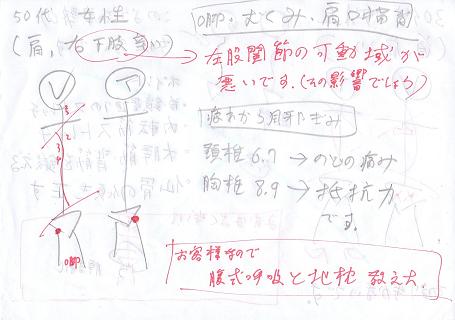 50代 女性
(肩、右下肢
O脚・むくみ・肩
左股関節の可動域が
悪いです.(その影響でしょう)
疲れから
頚椎 6.7 → のどの痛み
胸椎 8.9 → 抵抗力
です。
1
2
3
4
O脚
お客様なので
腹式呼吸と地枕 教えた.